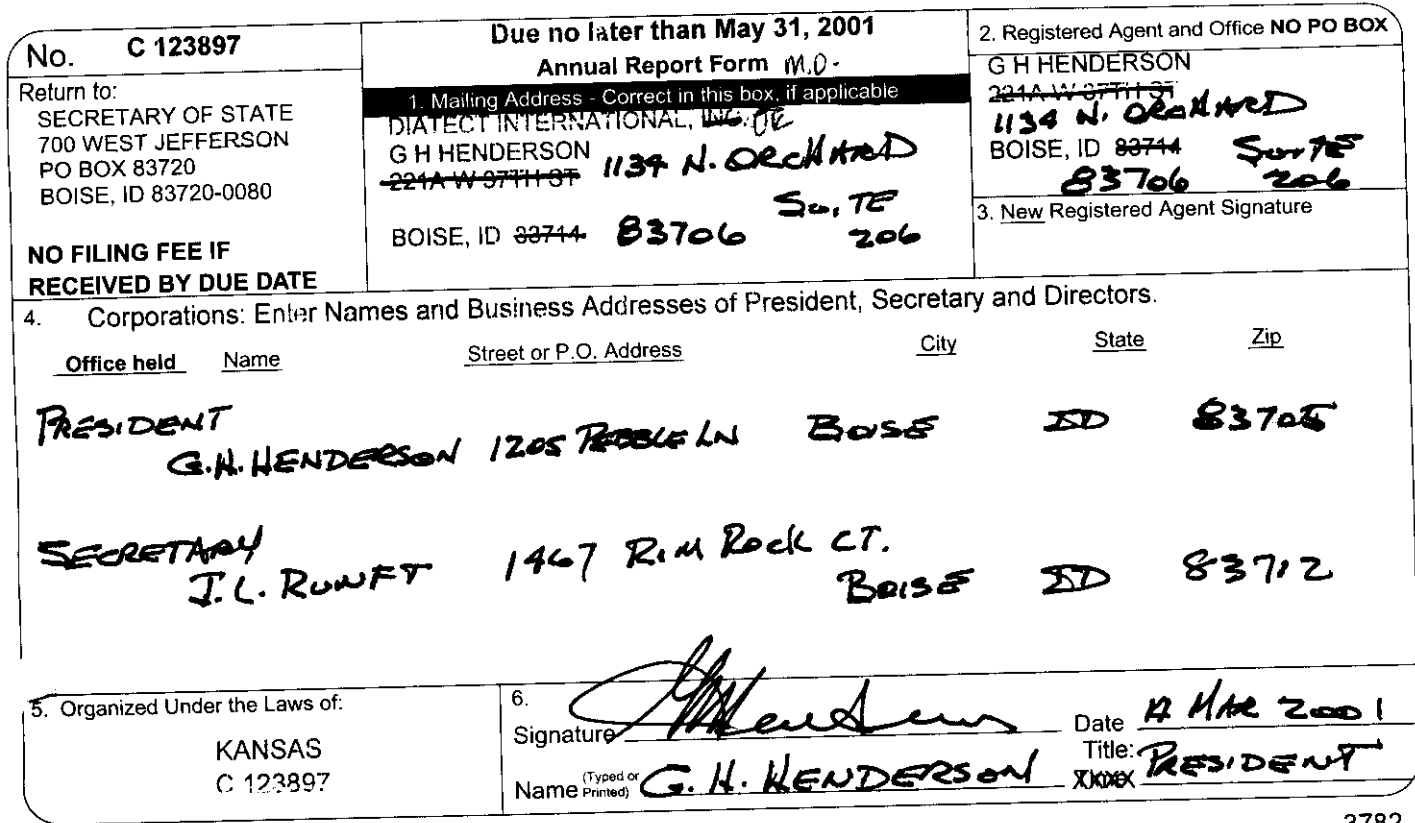 No. C 123897
Return to:
SECRETARY OF STATE
700 WEST JEFFERSON
PO BOX 83720
BOISE, ID 83720-0080
NO FILING FEE IF
RECEIVED BY DUE DATE
Due no later than May 31, 2001
Annual Report Form M.O.
1. Mailing Address - Correct in this box, if applicable
DIATECT INTERNATIONAL, INC.
G H HENDERSON 1134 N. ORCHARD
221A W 37TH ST
SUITE
BOISE, ID 83714 83706 206
2. Registered Agent and Office NO PO BOX
G H HENDERSON
221A W 37TH ST
1134 N. ORCHARD
BOISE, ID 83714 SUITE
83706 206
3. New Registered Agent Signature
4. Corporations: Enter Names and Business Addresses of President, Secretary and Directors.
Office held Name Street or P.O. Address City State Zip
PRESIDENT
G.H. HENDERSON 1205 PEBBLE LN BOISE ID 83705
SECRETARY
J.L. RUNFT 1467 RIM ROCK CT.
BOISE ID 83712
5. Organized Under the Laws of:
KANSAS
C 123897
6.
Signature Date MAR 2001
Name (Typed or Printed) G. H. HENDERSON Title: PRESIDENT
3782